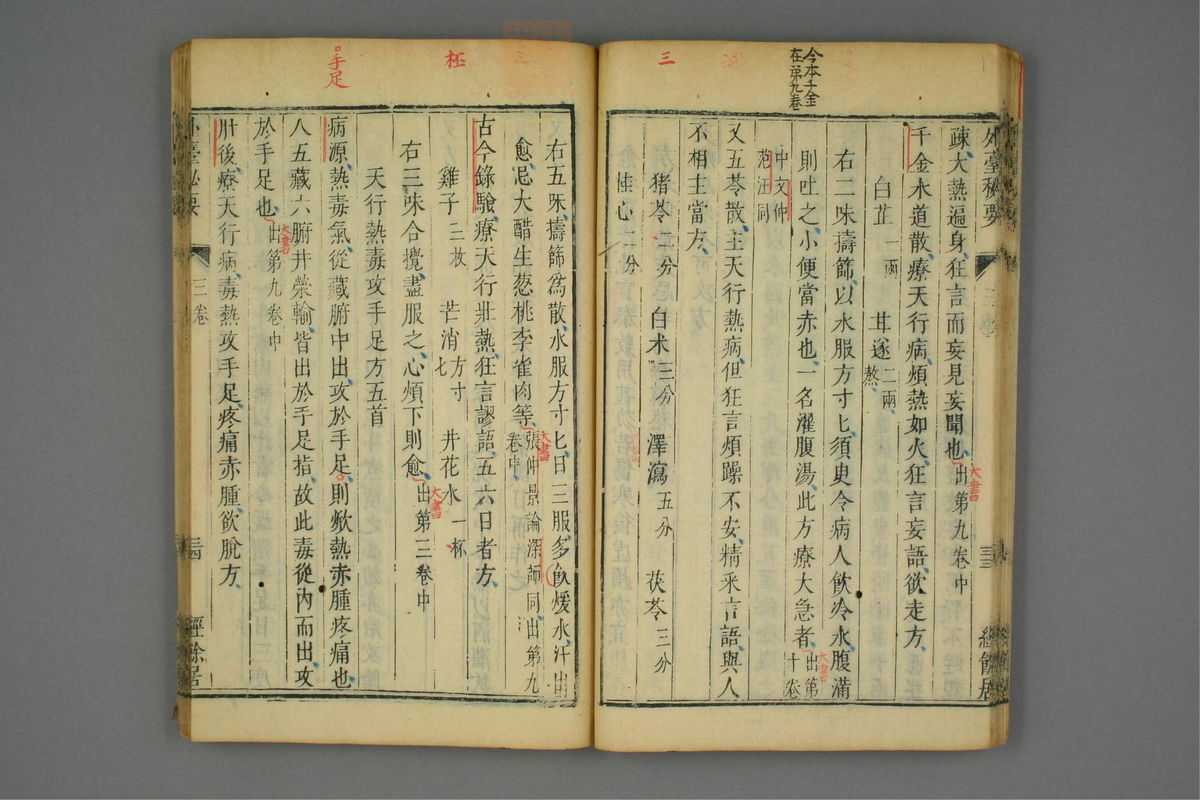 今本千金
在第九卷
三
外臺秘要
三卷
三三
經餘居
疎大熱遍身狂言而妄見妄聞也出第九卷中
大書
千金水道散療天行病煩熱如火狂言妄語欲走方
白芷一兩 甘遂二兩熬
右二味擣篩以水服方寸匕須臾令病人飲冷水腹滿
則吐之小便當赤也一名濯腹湯此方療大急者出第十卷
大書
中文仲
范汪同
又五苓散主天行熱病但狂言煩躁不安精采言語與人
不相主當方
猪苓二分 白术三分 澤瀉五分 茯苓三分
桂心二分
三
柸
手足
右五味擣篩為散水服方寸匕日三服多飲煖水汗出
愈忌大醋生葱桃李雀肉等張仲景論深師同出第九卷中
大書
古今錄驗療天行壯熱狂言謬語五六日者方
雞子三枚 芒消方寸匕 井花水一杯
右三味合攪盡服之心煩下則愈出第三卷中
大書
天行熱毒攻手足方五首
病源熱毒氣從藏腑中出攻於手足則焮熱赤腫疼痛也
人五藏六腑井滎輸皆出於手足指故此毒從內而出攻
於手足也出第九卷中
大書
肘後療天行病毒熱攻手足疼痛赤腫欲脫方
外臺秘要
三卷
三四
經餘居